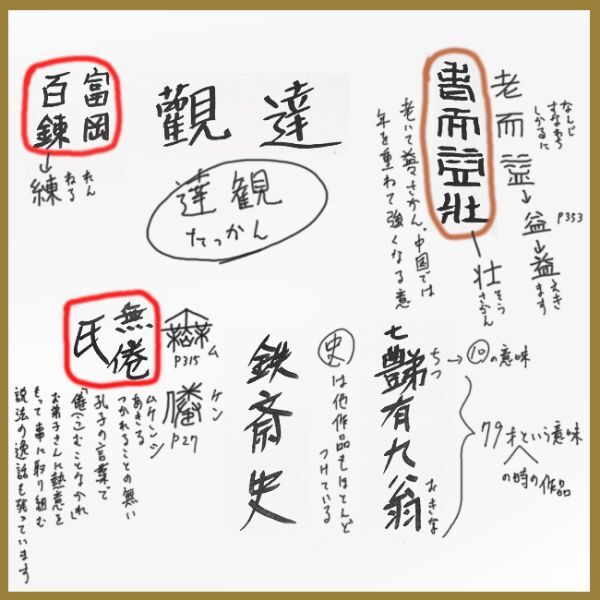 老而益壯
老而益
益
益
なんじ
すなわち
しかるに
P353
えき
ます
壮
そう
さかん
老いて益々さかん。中国では
年を重ねて強くなる意
達觀
達観
たっかん
富岡
百錬
練
れん
ねる
七豑有九翁
ちつ
おきな
⑩の意味
79才という意味
の時の作品
史は他作品もほとんど
つけている
鉄斎史
無倦
氏
ム
P315
ケン
P27
ムケンシ
あきる
つかれることの無い
孔子の言葉で
「倦(う)むことなかれ」
お弟子さんに熱意を
もって事に取り組む
説法の逸話も残っています